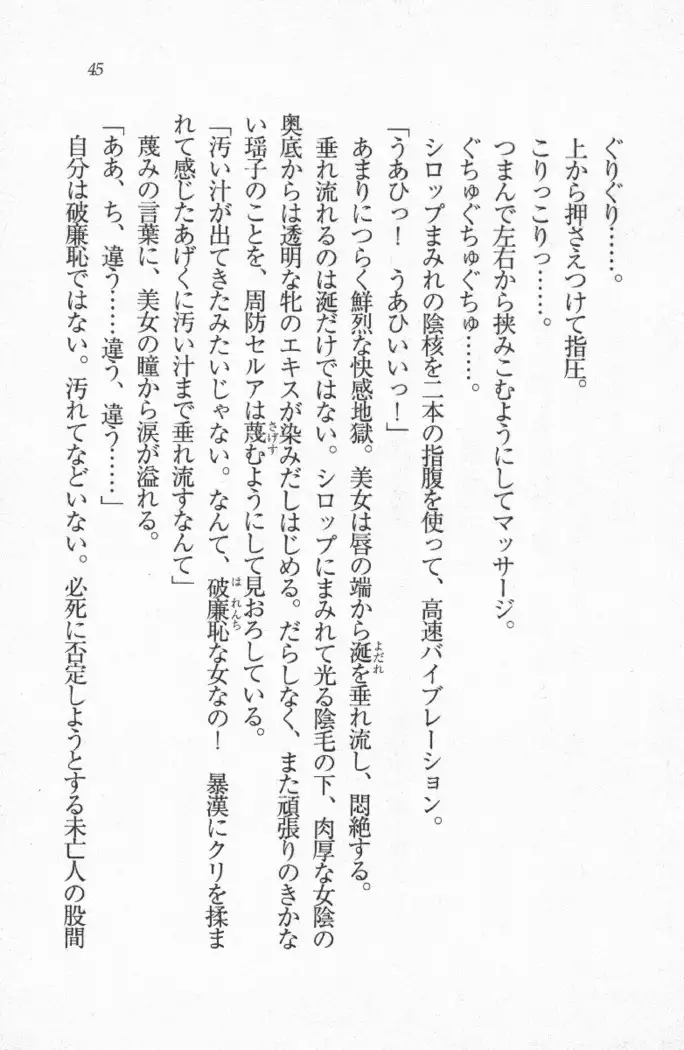 45
ぐりぐり……。
上から押さえつけて指圧。
こりっこりっ……。
つまんで左右から挟みこむようにしてマッサージ。
ぐちゅぐちゅぐちゅ……。
シロップまみれの陰核を二本の指腹を使って、高速バイブレーション。
「うあひっ！　うあひいいっ！」
よだれ
あまりにつらく鮮烈な快感地獄。美女は唇の端から涎を垂れ流し、悶絶する。
垂れ流れるのは涎だけではない。シロップにまみれて光る陰毛の下、肉厚な女陰の
奥底からは透明な牝のエキスが染みだしはじめる。だらしなく、また頑張りのきかな
さげす
い瑶子のことを、周防セルアは蔑むようにして見おろしている。
はれんち
「汚い汁が出てきたみたいじゃない。なんて、破廉恥な女なの！　暴漢にクリを揉ま
れて感じたあげくに汚い汁まで垂れ流すなんて」
蔑みの言葉に、美女の瞳から涙が溢れる。
「ああ、ち、違う……違う、違う……」
自分は破廉恥ではない。汚れてなどいない。必死に否定しようとする未亡人の股間